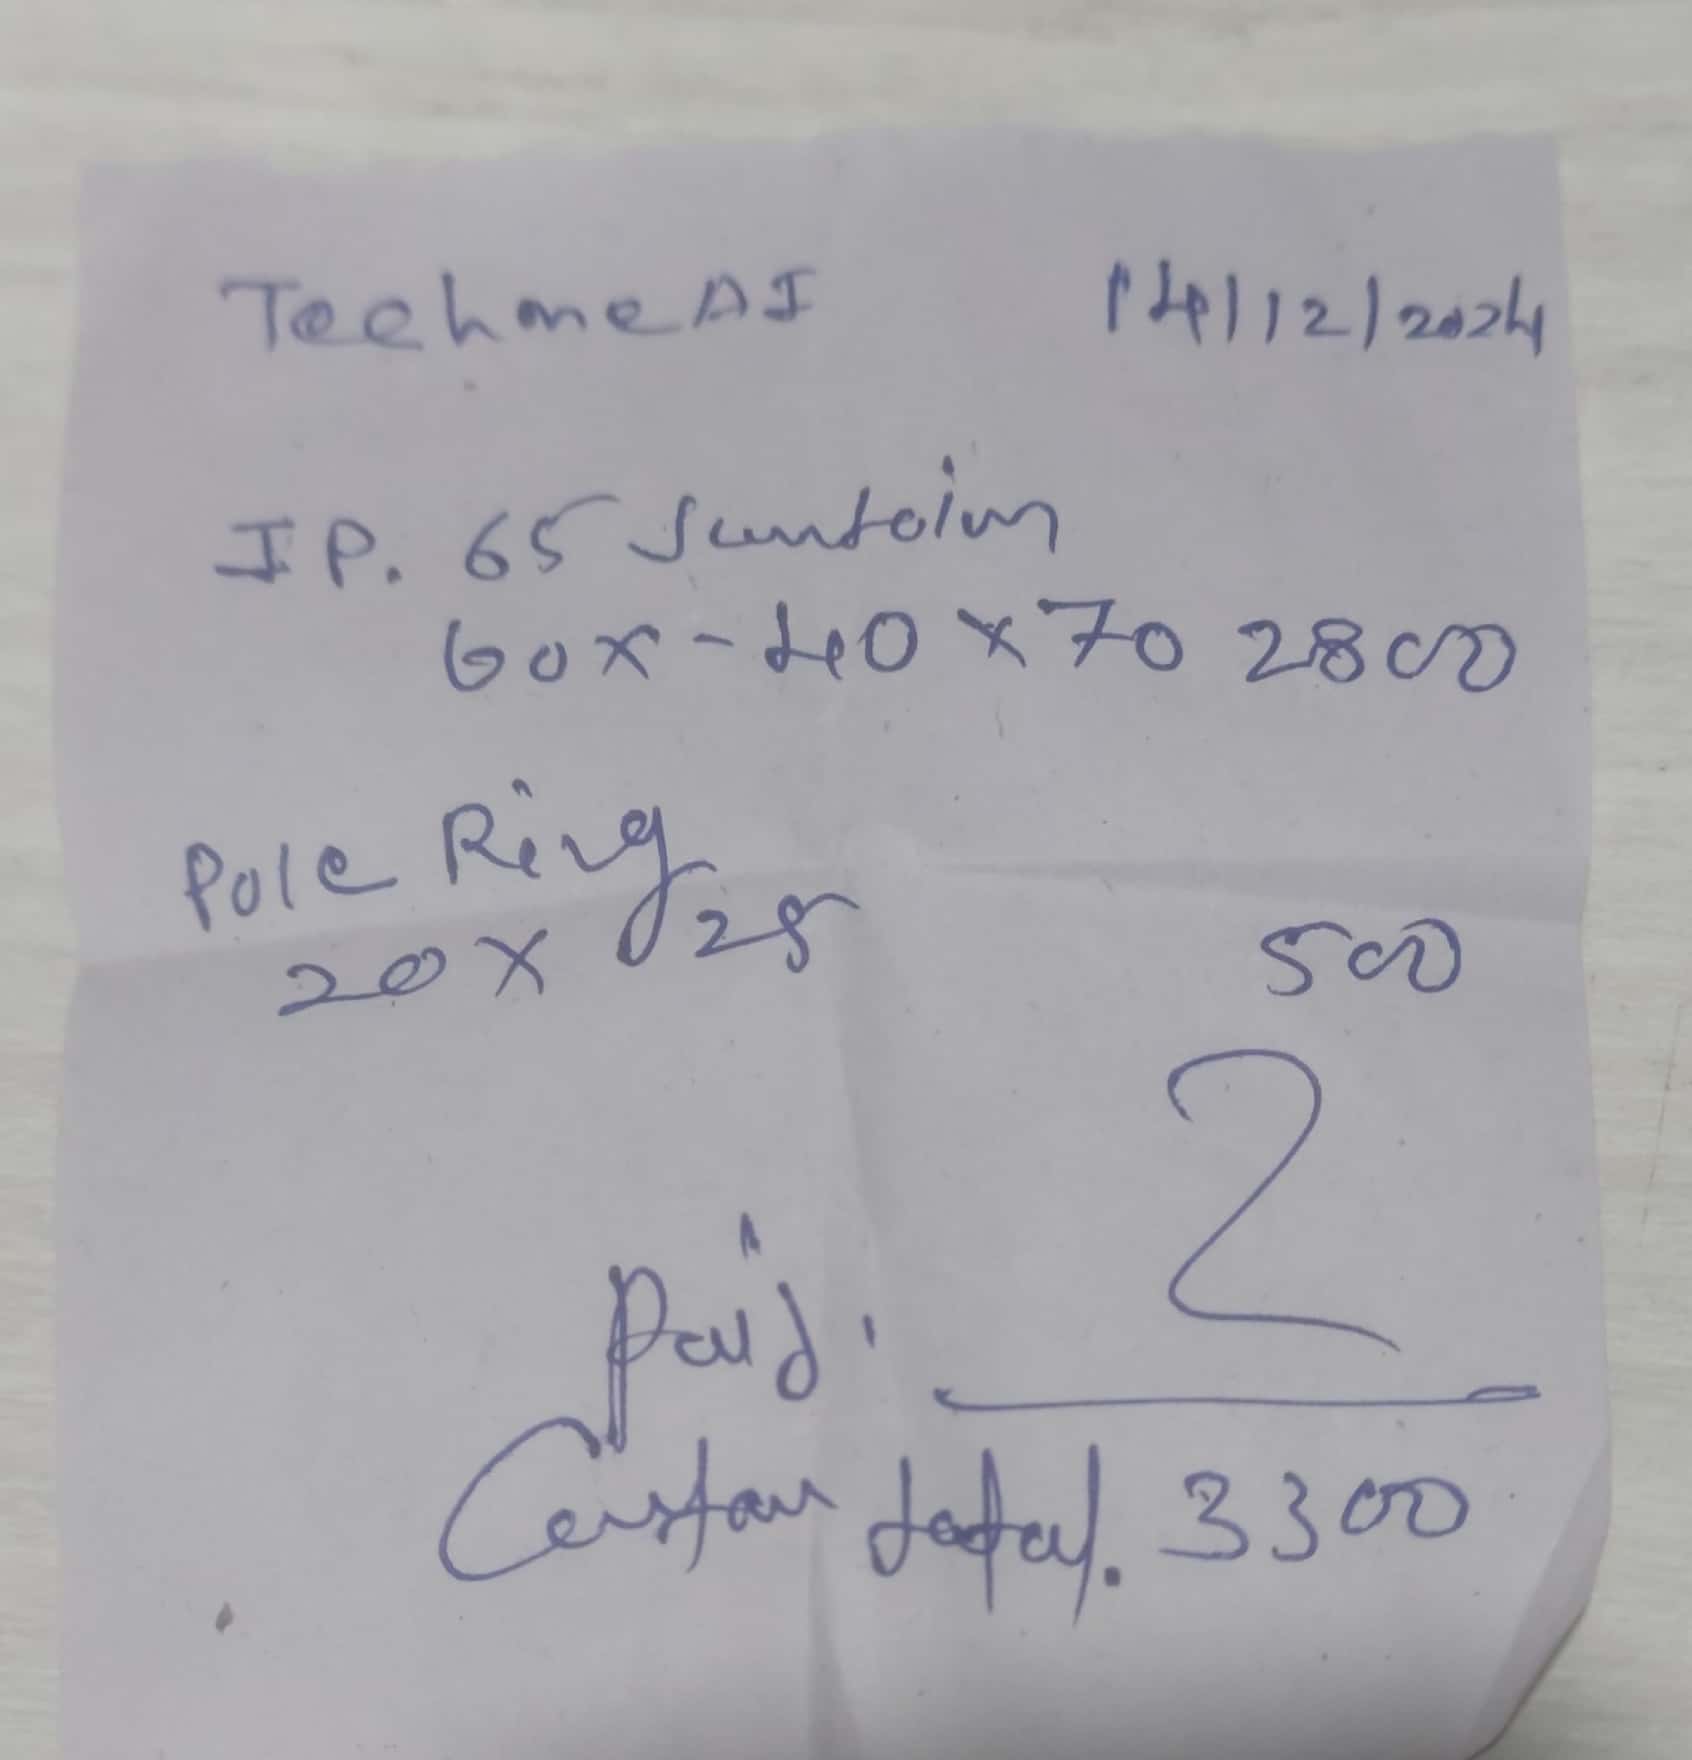 TechmeAI 14/12/2024
IP. 65
60x - 40 x 70 2800
Pole Ring
20 x 25 500
Paid.
total. 3300